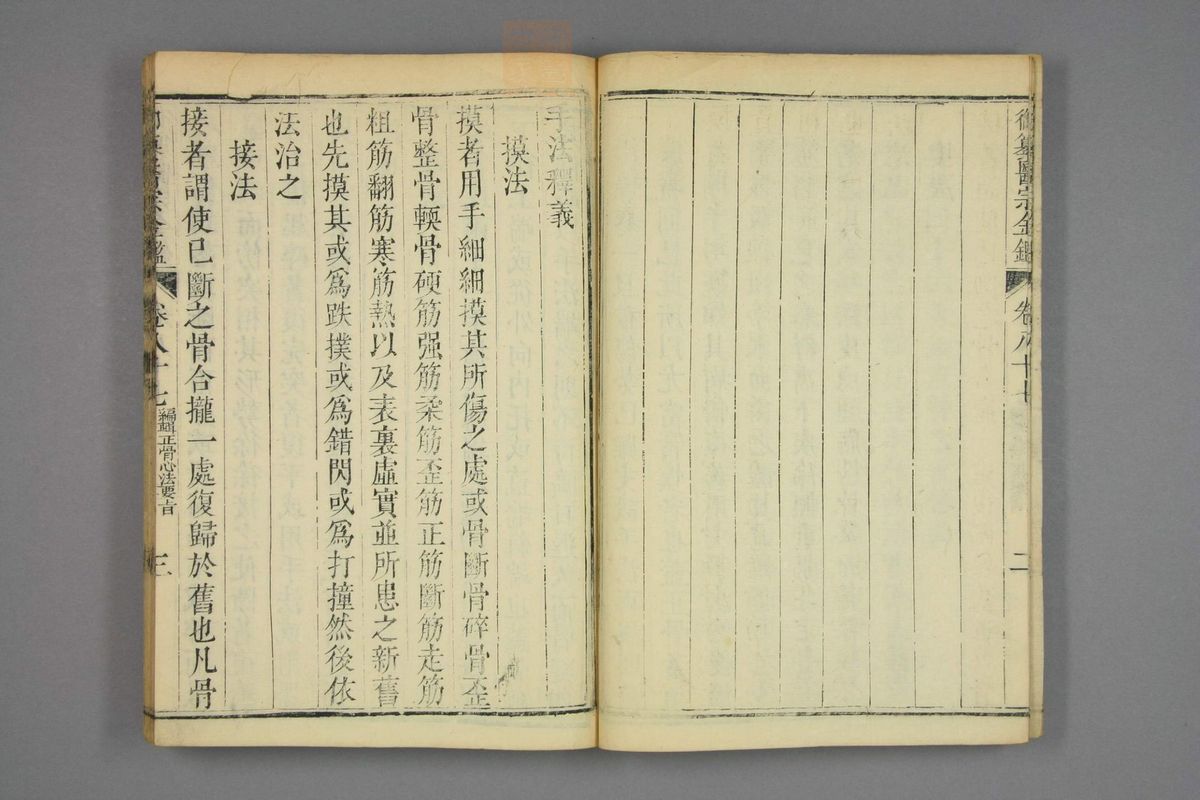 御纂醫宗金鑑 卷八十七 二
手法釋義
摸法
摸者用手細細摸其所傷之處或骨斷骨碎骨歪
骨整骨輭骨硬筋强筋柔筋歪筋正筋斷筋走筋
粗筋翻筋寒筋熱以及表裏虛實並所患之新舊
也先摸其或爲跌撲或爲錯閃或爲打撞然後依
法治之
接法
接者謂使已斷之骨合攏一處復歸於舊也凡骨
御纂醫宗金鑑 卷八十七 編輯正骨心法要旨 三